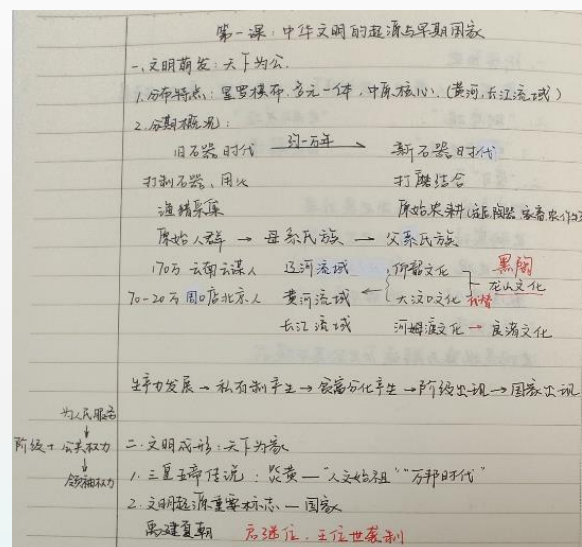 第一课：中华文明的起源与早期国家
一、文明萌发：天下为公.
1.分布特点：星罗棋布.多元一体，中原核心.(黄河、长江流域)
2.分期概况：
旧石器时代 约一万年→ 新石器时代
打制石器、用火 打磨结合
渔猎采集 原始农耕
原始人群→母系氏族→父系氏族
170万 云南元谋人 辽河流域 仰韶文化 黑陶
70-20万 周口店北京人 黄河流域← 大汶口文化 龙山文化
长江流域 河姆渡文化→良渚文化
生产力发展→私有制产生→贫富分化产生→阶级出现→国家出现
为人民服务
↓
阶级+公共权力
↓
领袖权力
二、文明成形：天下为家
1.三皇五帝传说：炎黄—"人文始祖""万邦时代"
2.文明起源重要标志—国家
禹建夏朝 启继位，王位世袭制